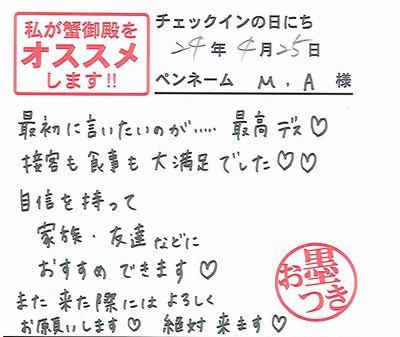 私が蟹御殿を
オススメ
します!!
チェックインの日にち
24年4月25日
ペンネーム M.A 様
最初に言いたいのが..... 最高デス♡
接客も食事も大満足でした♡♡
自信を持って
家族・友達などに
おすすめできます♡
また来た際にはよろしく
お願いします♡ 絶対来ます♡
お墨つき